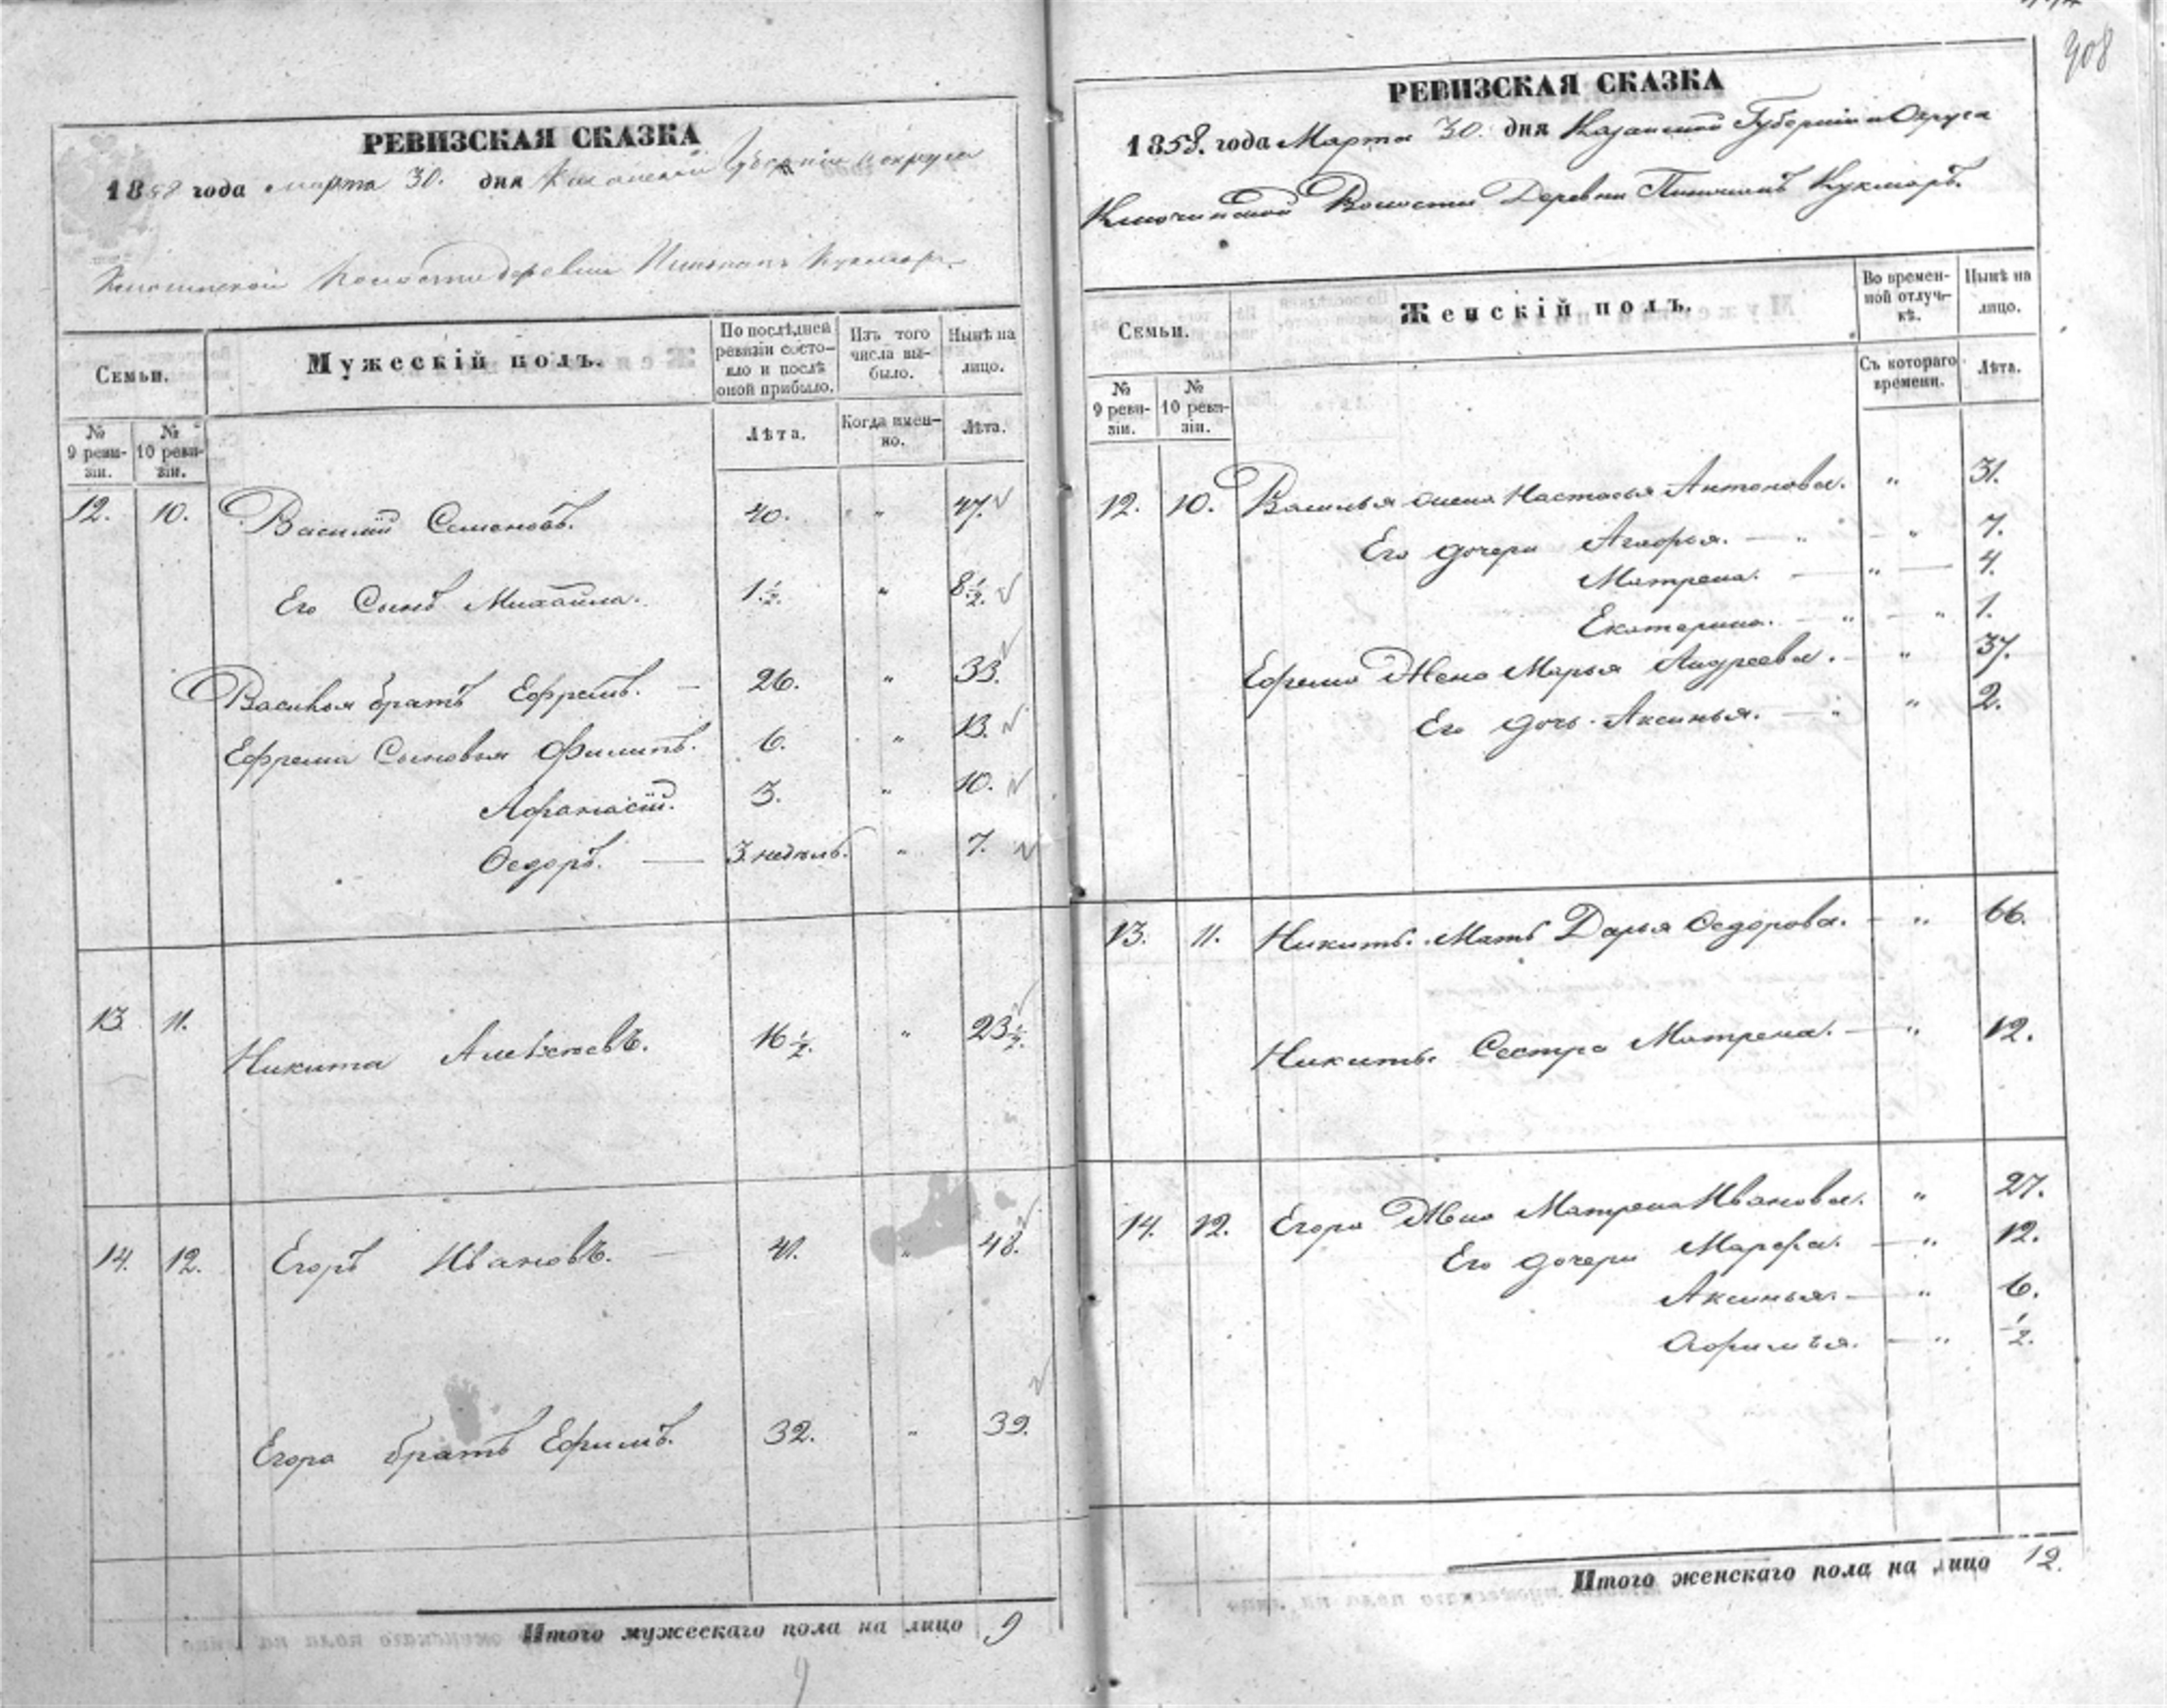 308
РЕВИЗСКАЯ СКАЗКА
1858 года марта 30. дня Казанской Губерніи и округа
волости деревни Кукмаръ
Семьи.
Мужескій полъ.
По послѣдней ревизіи состояло и послѣ оной прибыло.
Изъ того числа выбыло.
Нынѣ на лицо.
№ 9 ревизіи.
№ 10 ревизіи.
Лѣта.
Когда именно.
Лѣта.
12. 10. Василій Семеновъ. 40. " 47.
Его Сынъ Михайла. 1 1/2. " 8 1/2.
Василья братъ Ефремъ. — 26. " 33.
Ефрема Сыновья Филипъ. 6. " 13.
Афанасій. 3. " 10.
Ѳедоръ. — 3. недѣль. " 7.
13. 11. Никита Алексѣевъ. 16 1/2. " 23 1/2.
14. 12. Егоръ Ивановъ. — 41. " 48.
Егора братъ Ефимъ. 32. " 39.
Итого мужескаго пола на лицо 9
9
РЕВИЗСКАЯ СКАЗКА
1858. года Марта 30. дня Казанской Губерніи и Округа
Ключинской Волости Деревни Кукмаръ.
Семьи.
Женскій полъ.
Во временной отлучкѣ.
Нынѣ на лицо.
№ 9 ревизіи.
№ 10 ревизіи.
Съ котораго времени.
Лѣта.
12. 10. Василья жена Настасья Антонова. " 31.
Его дочери Агафья. — " — " 7.
Матрена. — " — 4.
Екатерина. — " — " 1.
Ефрема Жена Марья Андреева. — " 37.
Его дочь Аксинья. — " " 2.
13. 11. Никиты. Мать Дарья Ѳедорова. — " 66.
Никиты. Сестра Матрена. — " 12.
14. 12. Егора Жена Матрена Иванова. " 27.
Его дочери Марѳа. — " 12.
Аксинья. — " 6.
Афимья. — " 1/2.
Итого женскаго пола на лицо 12.